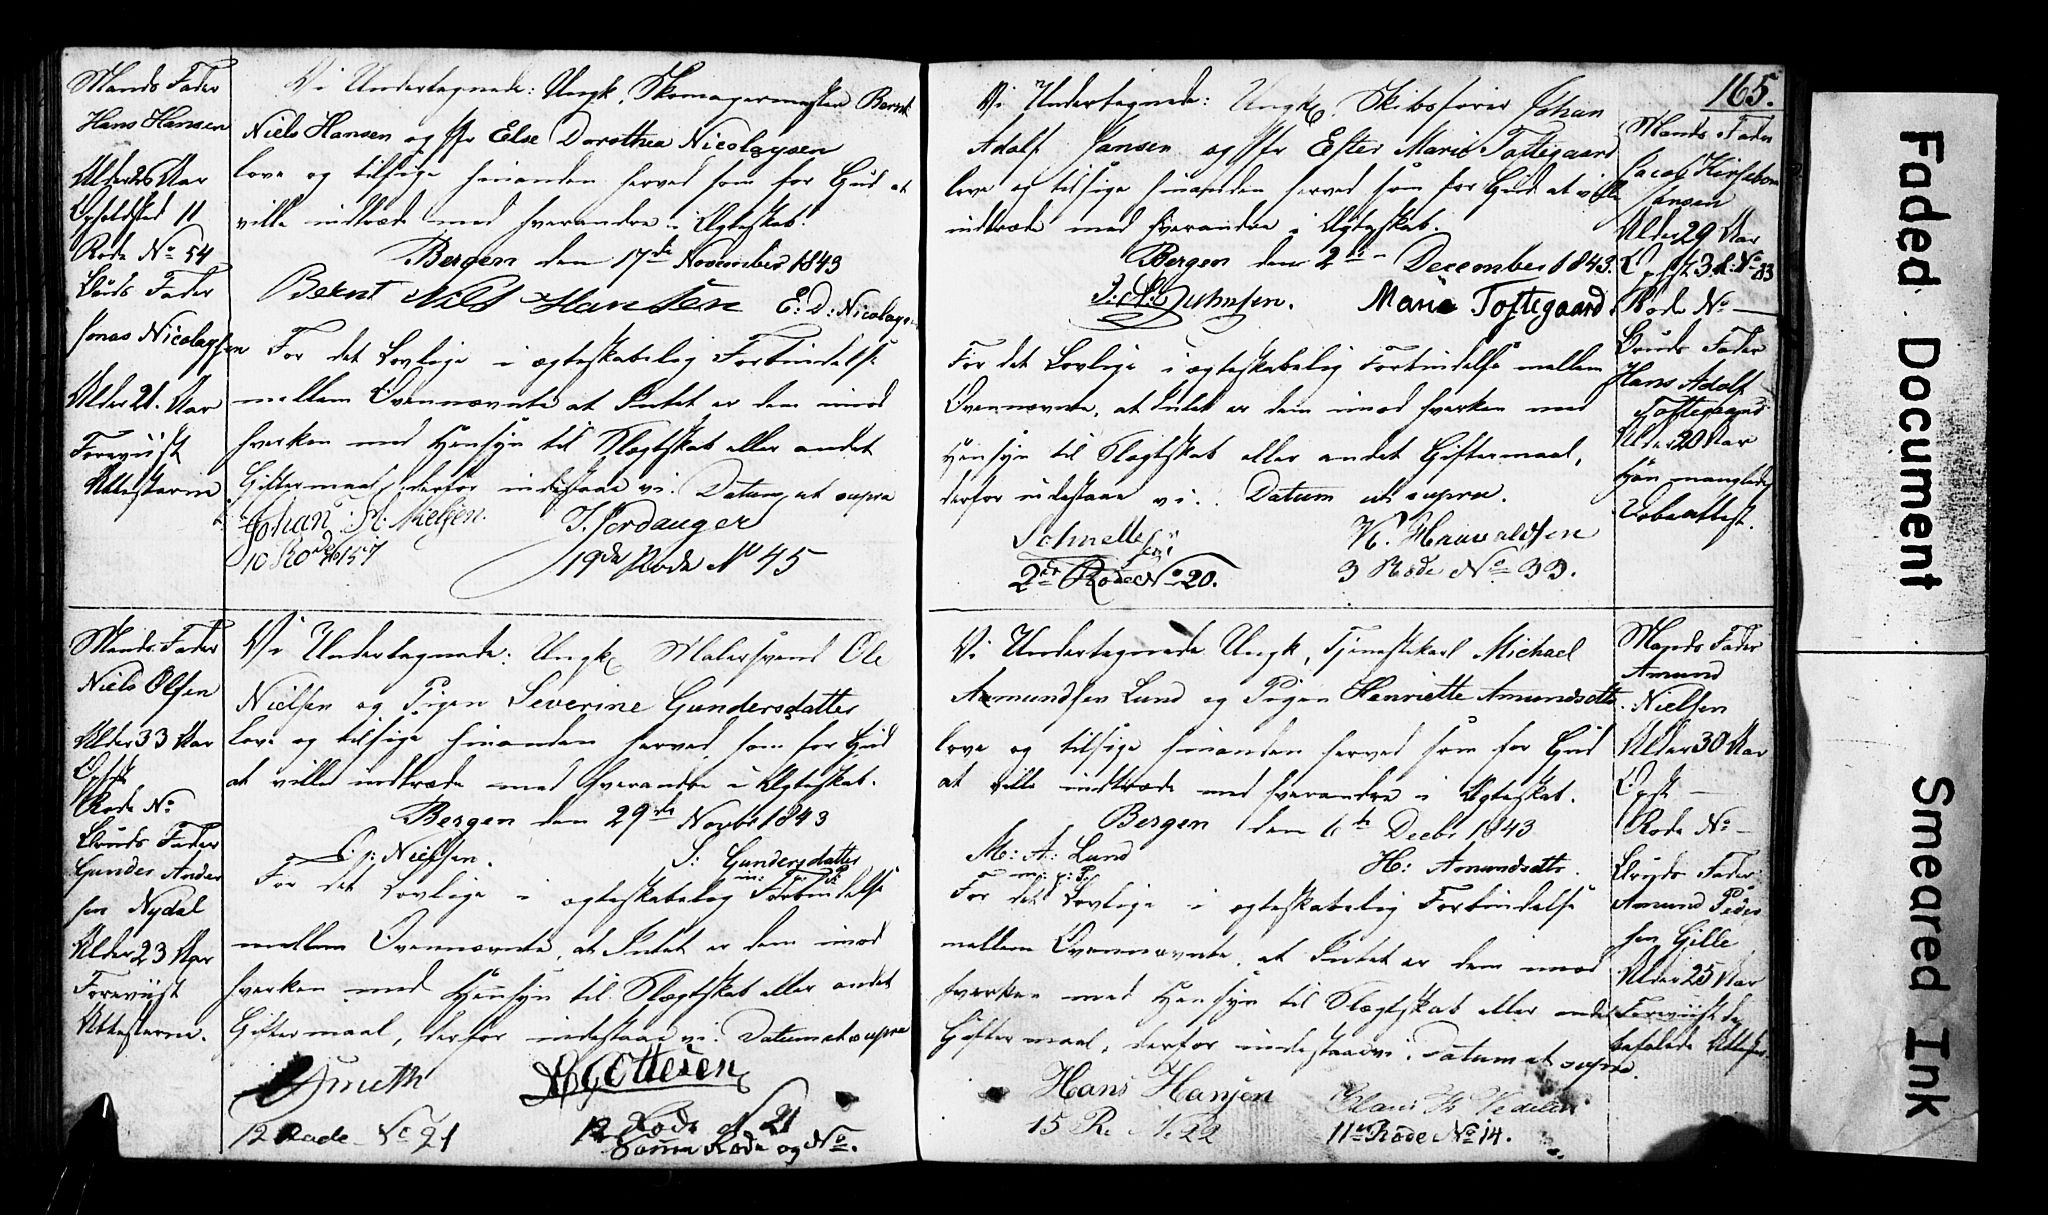 Mands Fader
Hans Hansen
Alder 26 Aar
Opholdsted 11
Rode No 54
Bruds Fader
Jonas Nicolaysen
Alder 21. Aar
Foreviist
Attesterne
Vi Undertegnede: Ungk. Skomagermester Bernt
Niels Hansen og Jfr Else Dorothea Nicolaysen
love og tilsige hinanden herved som for Gud at
ville indtræde med hverandre i Ægteskab.
Bergen den 17de November 1843
Bernt Nils Hansen E: D: Nicolaysen
For det Lovlige i ægteskabelig Forbindelse
mellem Ovennævnte at Intet er dem imod
hverken med Hensyn til Slægtskab eller andet
Giftermaal, derfor indestaae vi. Datum ut supra
Johan A: Nielsen. J. Jordanger
10 Rode No 157 19de Rode No 45
Mands Fader
Niels Olsen
Alder 33 Aar
Opst
Rode No
Bruds Fader
Gunder Ander
sen Nydal
Alder 23 Aar
Foreviist
Attesterne.
Vi Undertegnede: Ungk. Malersvend Ole
Nielsen og Pigen Severine Gundersdatter
love og tilsige hinanden herved som for Gud
at ville indtræde med hverandre i Ægteskab.
Bergen den 29de Novbr 1843
O: Nielsen. S: Gundersdatter
m: p: P:
For det Lovlige i ægteskabelig Forbindelse
mellem Ovennævnte, at Intet er dem imod
hverken med Hensyn til Slægtskab eller andet
Giftermaal, derfor indestaae vi. Datum ut supra
Smith Ottesen
12 Rode No 21 12 Rode No 21
Samme Rode og No.
165.
Vi Undertegnede: Ungk. Skibsfører Johan
Adolf Jansen og Jfr Ester Marie Toftegaard
love og tilsige hinanden herved som for Gud at ville
indtræde med hverandre i Ægteskab.
Bergen den 2den December 1843.
J: A: Juhnsen. Marie Toftegaard
For det Lovlige i ægteskabelig Forbindelse mellem
Ovennævnte, at Intet er dem imod hverken med
Hensyn til Slægtskab eller andet Giftermaal,
derfor indestaae vi. Datum ut supra.
Schnelle K. Haavaldsen
2den Rode No 20. 3 Rode No 33.
Mands Fader
Jacob Kirsebom
Jansen
Alder 29 Aar
Opst. 3 R: No 33
Rode No —
Bruds Fader
Hans Adolf
Toftegaard
Alder 20 Aar
Han manglede
Daabsattest.
Vi Undertegnede Ungk. Tjenestekarl Michael
Amundsen Lund og Pigen Henriette Amundsdtt
love og tilsige hinanden herved som for Gud
at ville indtræde med hverandre i Ægteskab.
Bergen den 6te Decbr 1843
M: A: Lund H: Amundsdtr.
m: p: P:
For det Lovlige i ægteskabelig Forbindelse
mellem Ovennævnte, at Intet er dem imod
hverken med Hensyn til Slægtskab eller andet
Giftermaal, derfor indestaae vi. Datum ut supra.
Hans Hansen Claus Vedeler
15 R. No 22 11te Rode No 14.
Mands Fader
Amund
Nielsen
Alder 30 Aar
Opst —
Rode No —
Bruds Fader
Amund Peder
sen Gille
Alder 25 Aar
Foreviist de
befalede Attester.
Faded Document
Smeared Ink